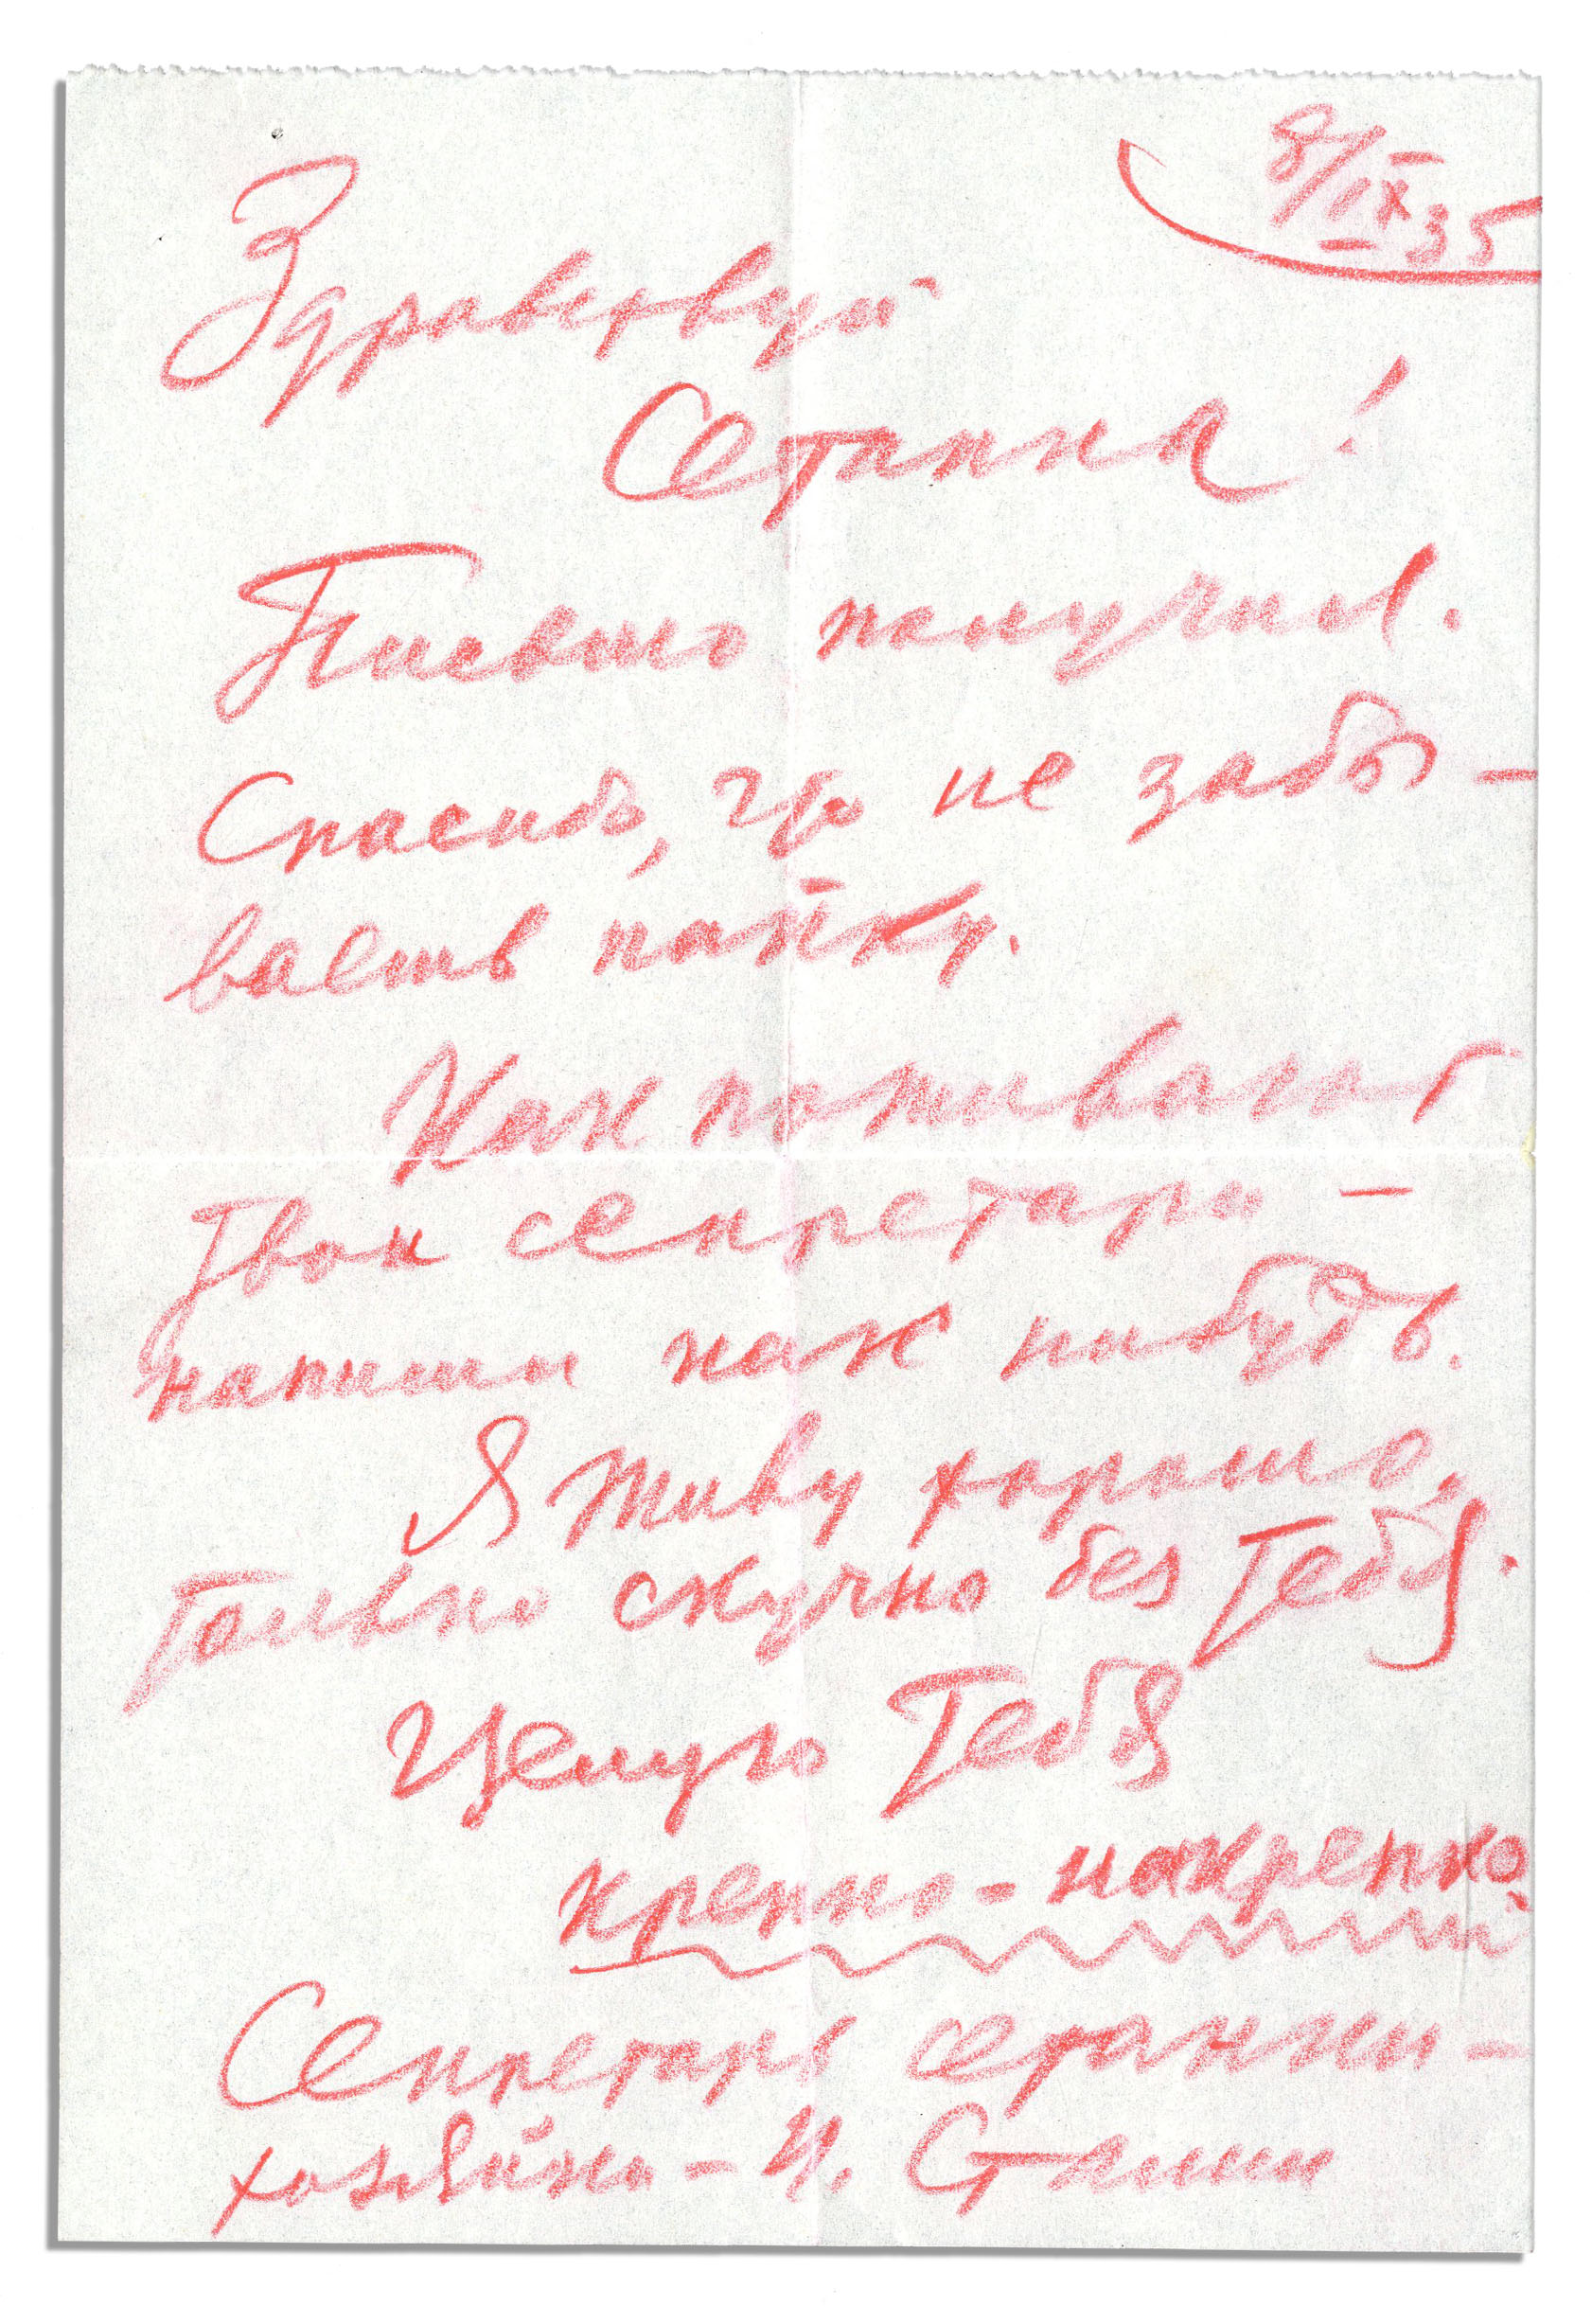 8/IX 35
Здравствуй
Сетанка!
Письмо получил.
Спасибо, что не забы-
ваешь папку.
Как поживают
Твои секретари —
напиши как нибудь.
Я живу хорошо,
только скучно без Тебя.
Целую Тебя
крепко-накрепко
Секретарь сетанки-
хозяйки – И. Сталин